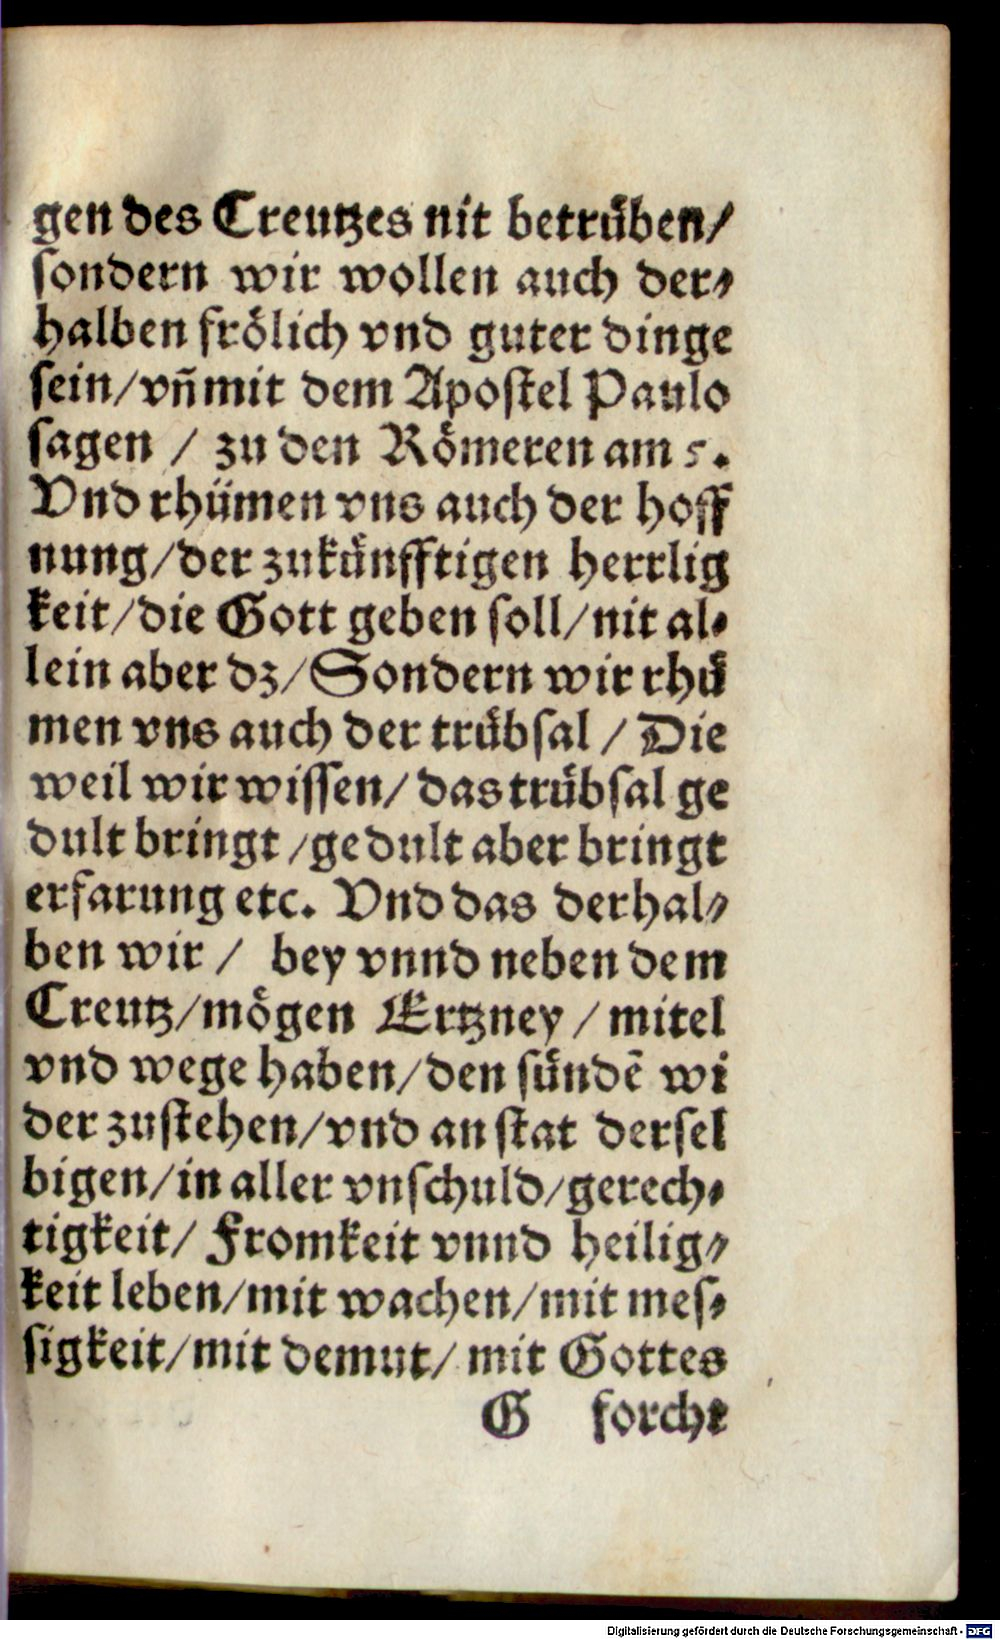 gen des Creutzes nit betrüben/
sondern wir wollen auch der-
halben frölich vnd guter dinge
sein/vn̄ mit dem Apostel Paulo
sagen / zu den Römeren am 5.
Vnd rhümen vns auch der hoff
nung/der zukünfftigen herrlig
keit/die Gott geben soll/nit al-
lein aber dz/Sondern wir rhü
men vns auch der trübsal / Die
weil wir wissen/ das trübsal ge
dult bringt /gedult aber bringt
erfarung etc. Vnd das derhal-
ben wir / bey vnnd neben dem
Creutz/mögen Ertzney / mitel
vnd wege haben/den sündē wi
der zustehen/vnd an stat dersel
bigen/in aller vnschuld/gerech-
tigkeit/ Fromkeit vnnd heilig-
keit leben/mit wachen/mit mes-
sigkeit/mit demut/ mit Gottes
G forcht
Digitalisierung gefördert durch die Deutsche Forschungsgemeinschaft - DFG